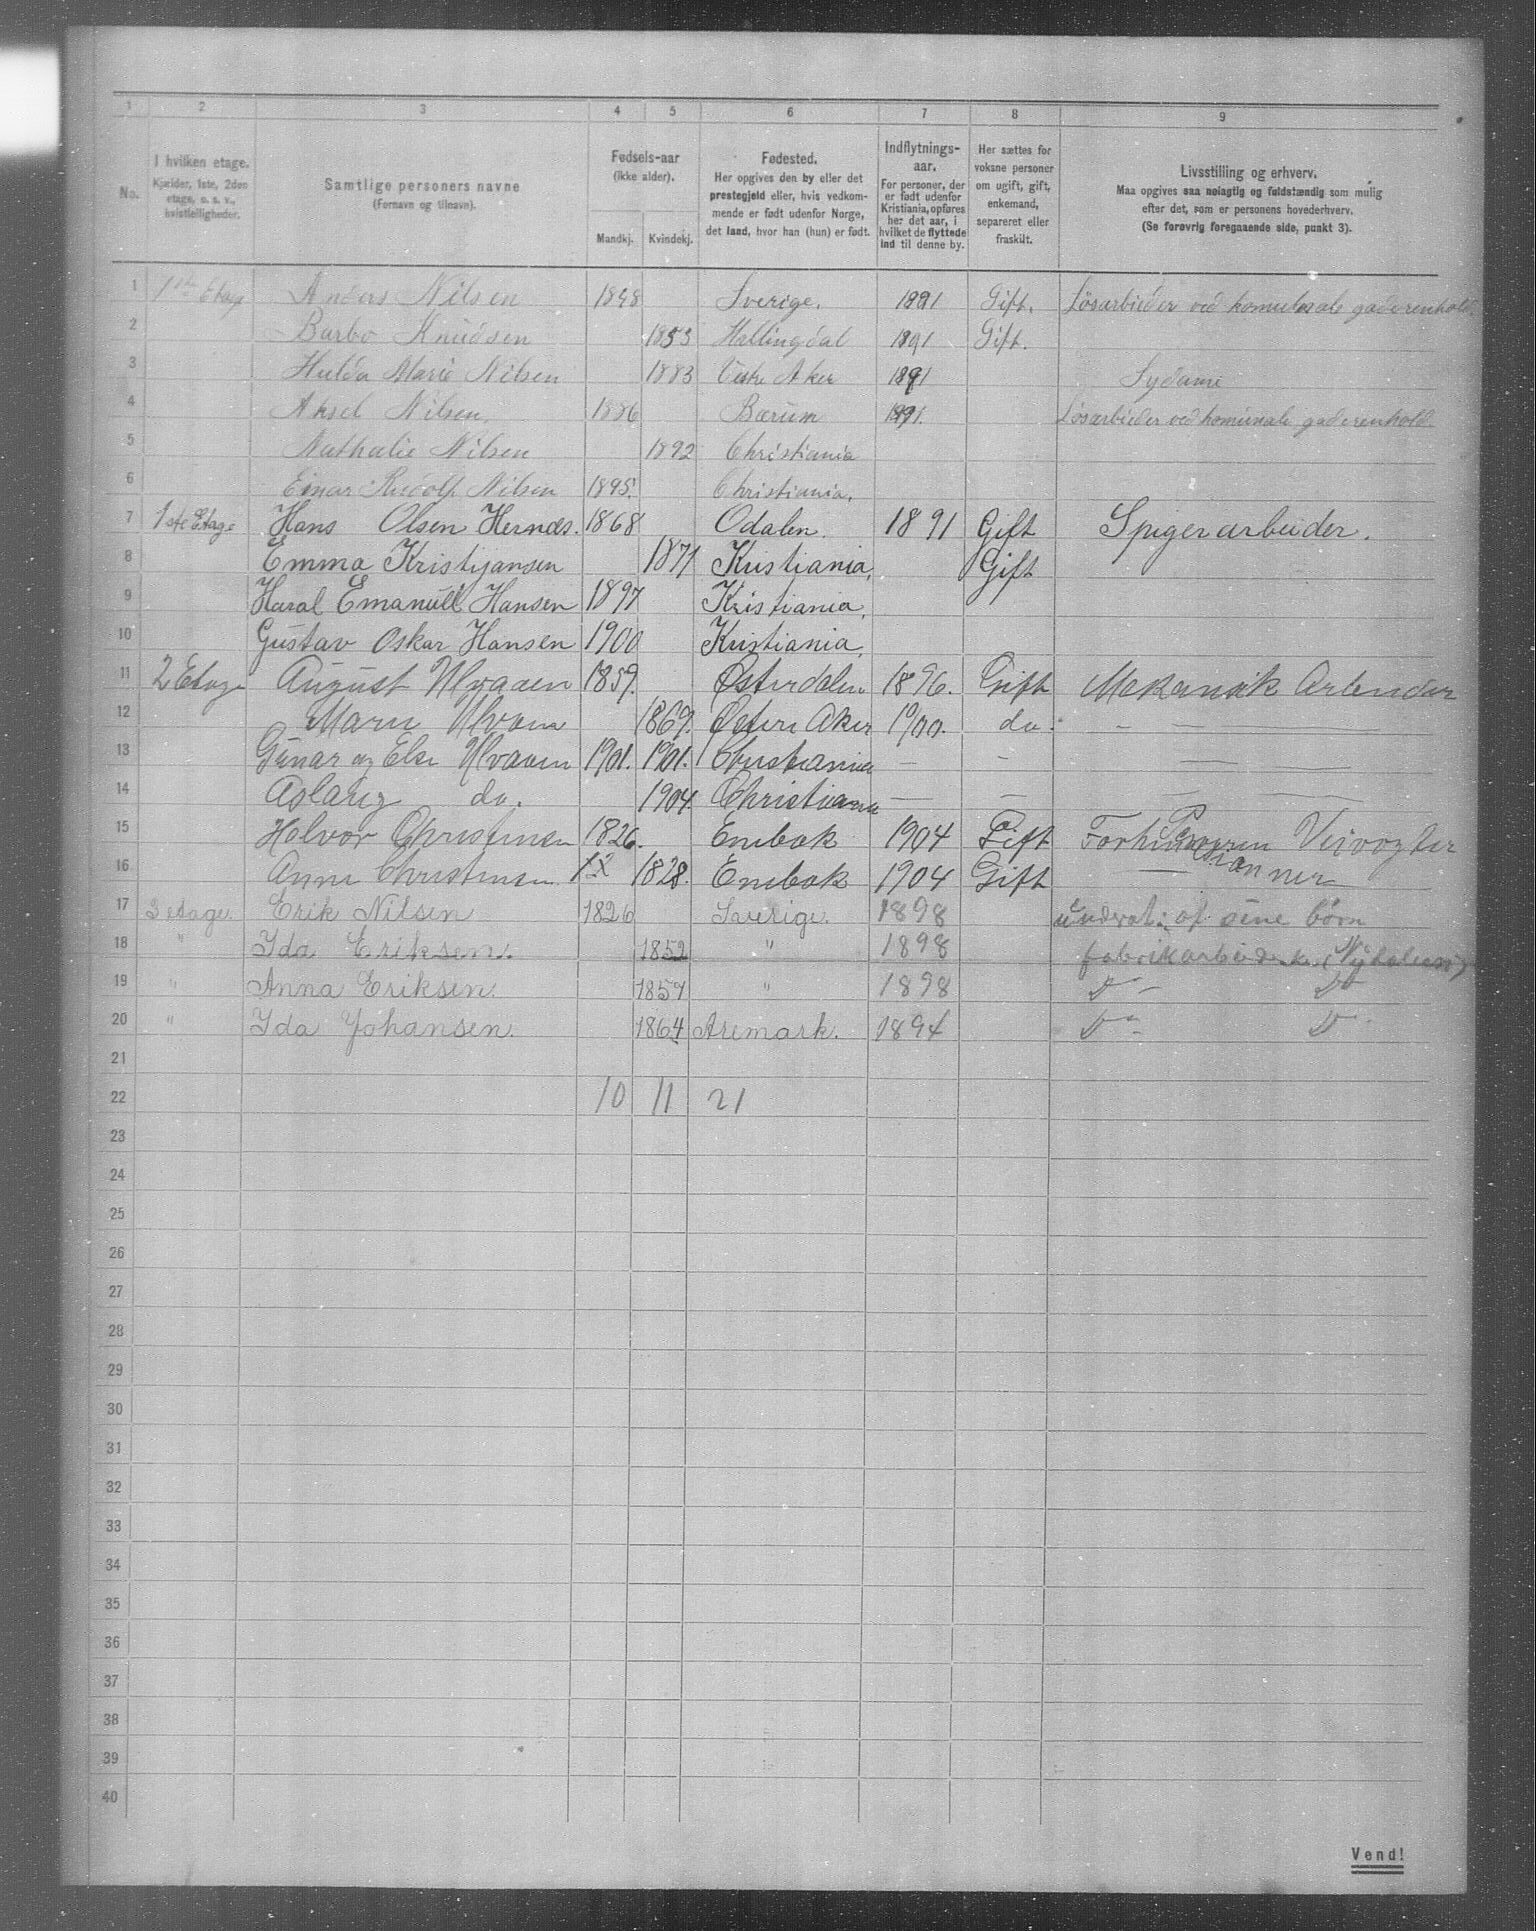 1 2 3 4 5 6 7 8 9
No.
I hvilken etage.
Kjælder, 1ste, 2den
etage, o. s. v.,
kvistleiligheder.
Samtlige personers navne
(Fornavn og tilnavn).
Fødsels-aar
(ikke alder).
Mandkj. Kvindekj.
Fødested.
Her opgives den by eller det
prestegjeld eller, hvis vedkom-
mende er født udenfor Norge,
det land, hvor han (hun) er født.
Indflytnings-
aar.
For personer, der
er født udenfor
Kristiania, opføres
her det aar, i
hvilket de flyttede
ind til denne by.
Her sættes for
voksne personer
om ugift, gift,
enkemand,
separeret eller
fraskilt.
Livsstilling og erhverv.
Maa opgives saa nøiagtig og fuldstændig som mulig
efter det, som er personens hovederhverv.
(Se forøvrig foregaaende side, punkt 3).
1 1ste Etage Anders Nilsen 1848 Sverige. 1891 Gift. Løsarbieder ved komunale gaderenhold.
2 Barbo Knudsen 1853 Hallingdal 1891 Gift.
3 Hulda Marie Nilsen 1883 Vestre Aker 1891 Sydame
4 Aksel Nilsen. 1886 Bærum 1891. Løsarbieder ved komunale gaderenhold.
5 Nathalie Nilsen 1892 Christiania
6 Einar Rudolf Nilsen 1895. Christiania.
7 1ste Etage Hans Olsen Hernæs. 1868 Odalen. 1891 Gift Spigerarbeider.
8 Emma Kristijansen 1871 Kristiania. Gift
9 Haral Emanuell Hansen 1897 Kristiania.
10 Gustav Oskar Hansen 1900 Kristiania.
11 2 Etage August Ulvaaen 1859. Østerdalen 1896. Gift Mekanisk Arbeider
12 Marie Ulvaaen 1869. Østre Aker 1900. do. — —
13 Gunar og Else Ulvaaen 1901. 1901. Christiania — - — —
14 Aslaug do. 1904. Christiania — — — —
15 Halvor Christensen 1826. Enebak 1904 Gift Forhenværen Veivogter
16 Anne Christensen 1828. Enebak 1904 Gift — Pensjanner
17 3 etage. Erik Nilsen 1826 Sverige. 1898 underst. af sine børn
18 " Ida Eriksen. 1852 " 1898 fabrikarbeiderske (Nydalen)
19 " Anna Eriksen. 1857 " 1898 D— D°
20 " Ida Johansen. 1864 Aremark. 1894 D— D—
21
22 10 11 21
23
24
25
26
27
28
29
30
31
32
33
34
35
36
37
38
39
40
Vend!